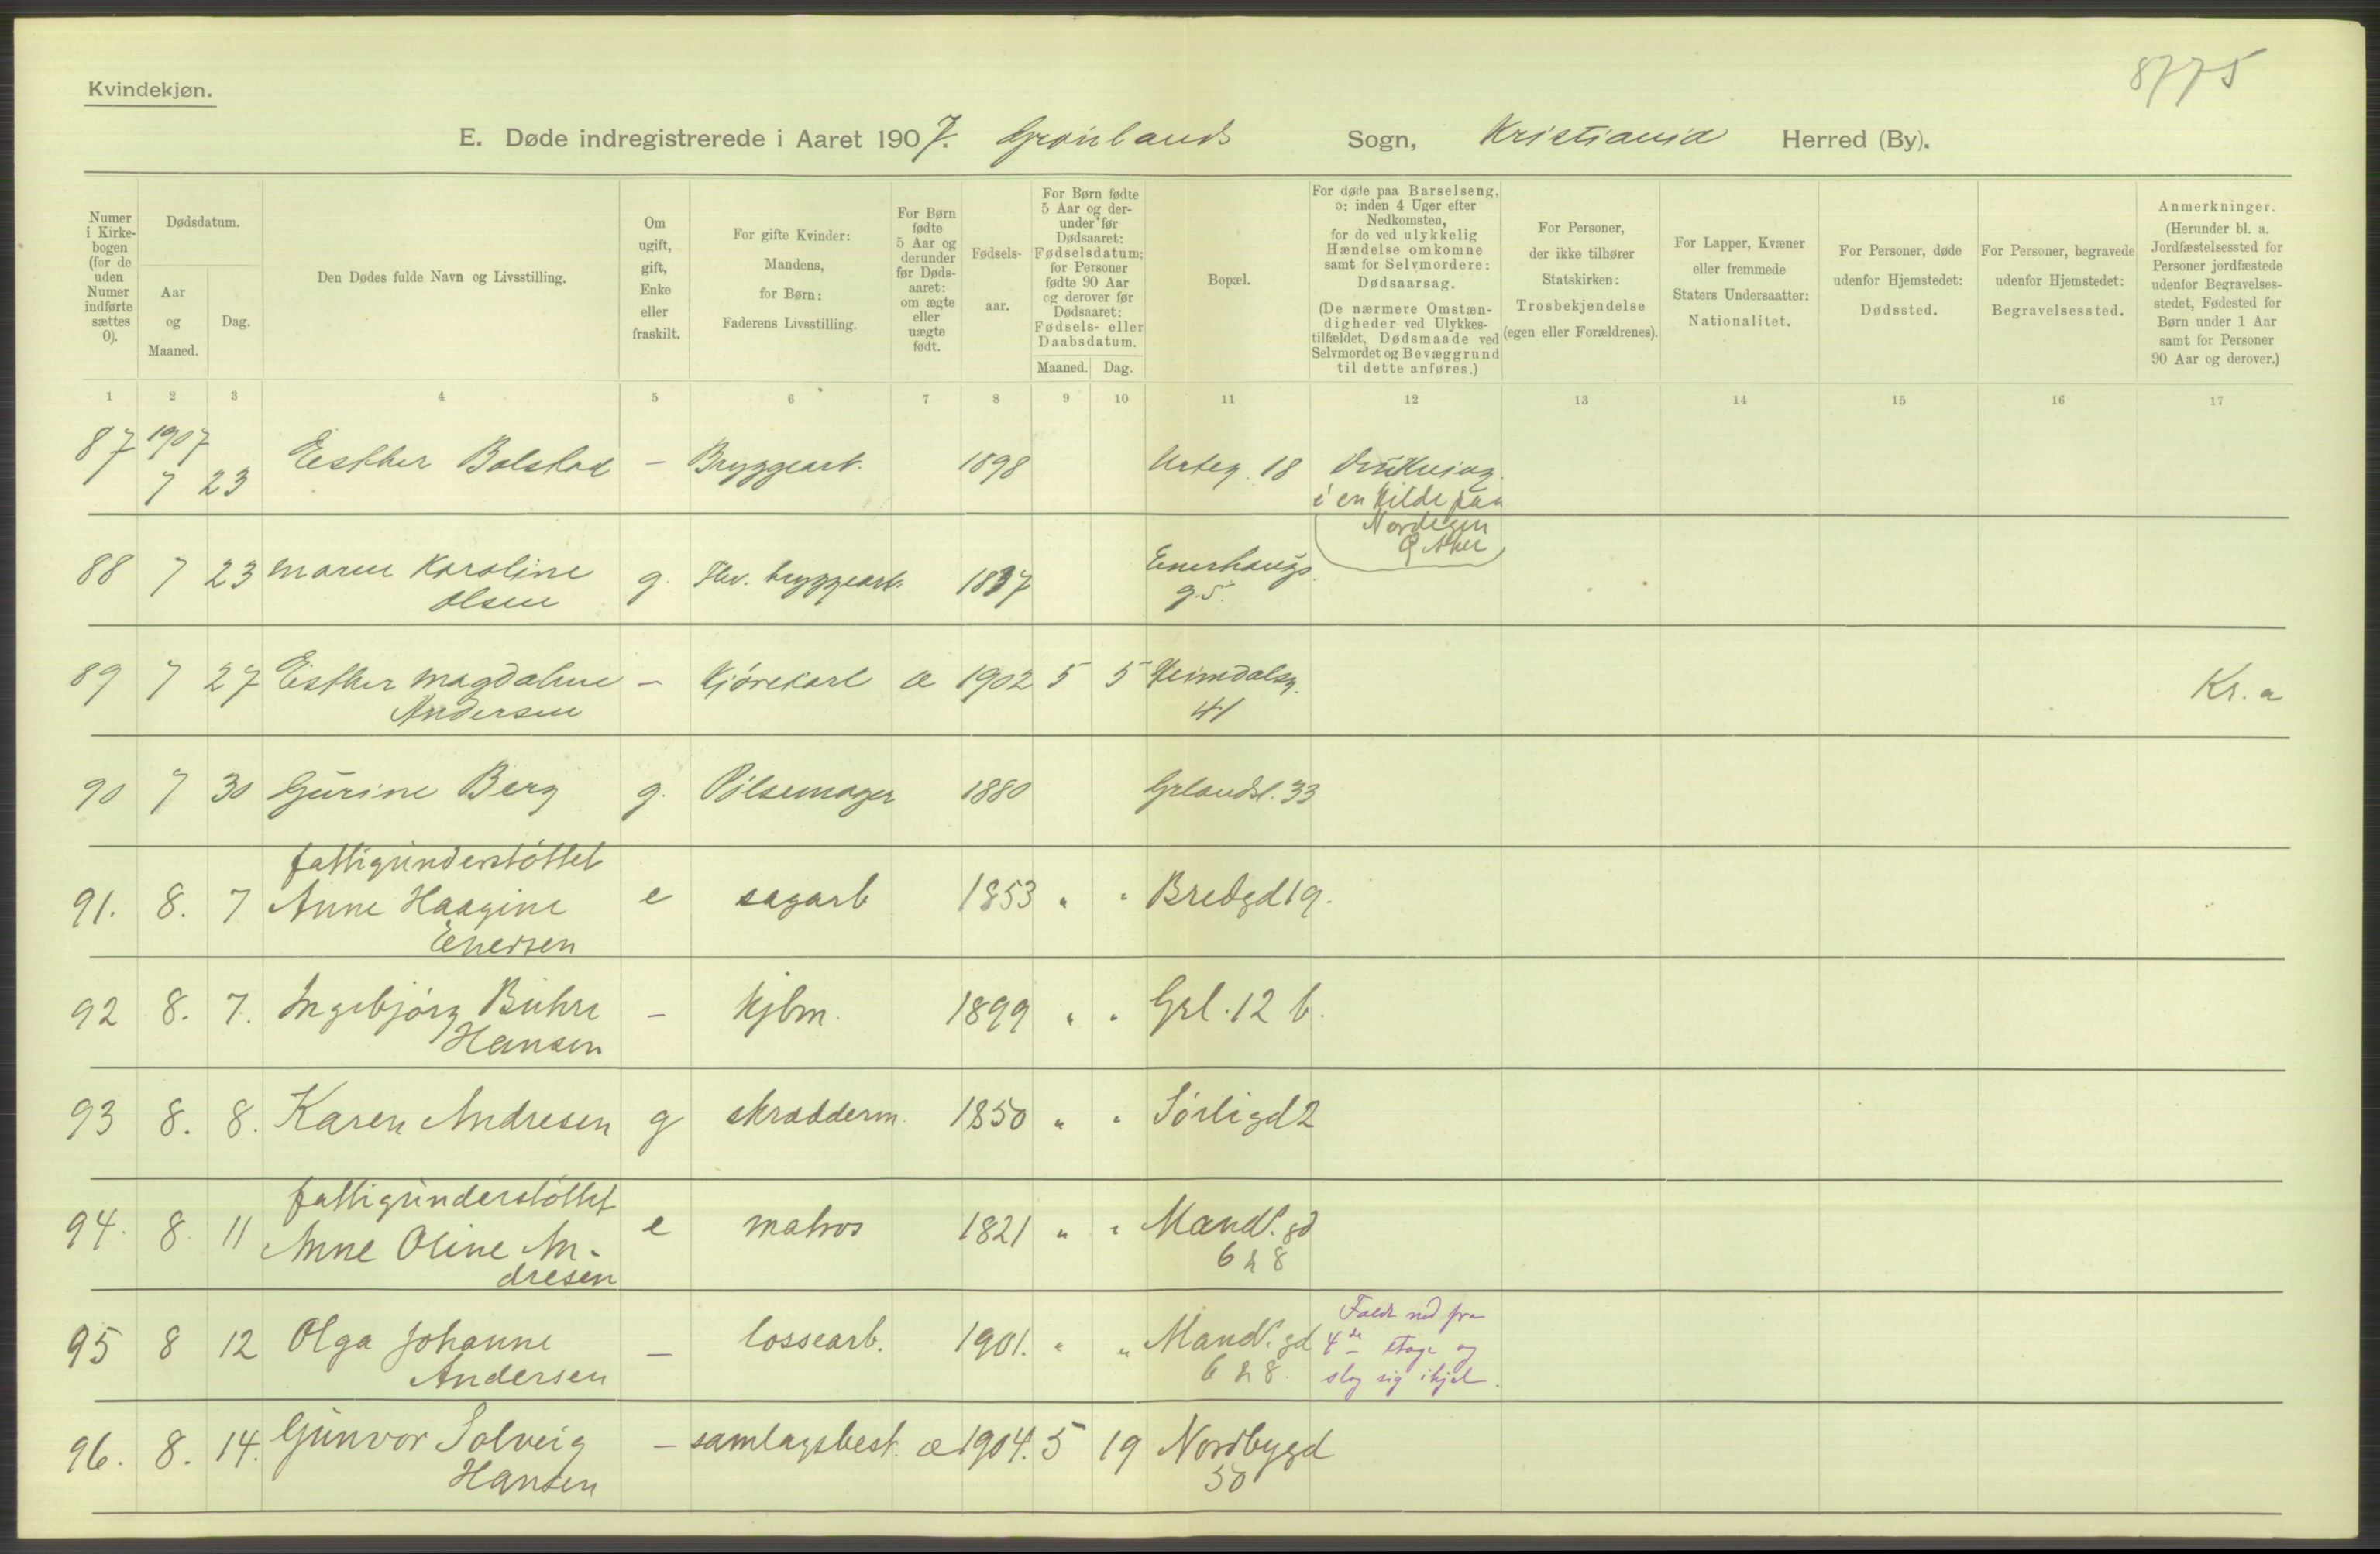 8775
Kvindekjøn.
E. Døde indregistrerede i Aaret 1907. Grønlands Sogn, Kristiania Herred (By).
Numer i Kirkebogen (for de uden Numer indførte sættes 0).
Dødsdatum.
Aar og Maaned.
Dag.
Den Dødes fulde Navn og Livsstilling.
Om ugift, gift, Enke eller fraskilt.
For gifte Kvinder: Mandens, for Børn: Faderens Livsstilling.
For Børn fødte 5 Aar og derunder før Dødsaaret: om ægte eller uægte født.
Fødselsaar.
For Børn fødte 5 Aar og derunder før Dødsaaret: Fødselsdatum; for Personer fødte 90 Aar og derover før Dødsaaret: Fødsels- eller Daabsdatum.
Maaned. Dag.
Bopæl.
For døde paa Barselseng, ɔ: inden 4 Uger efter Nedkomsten, for de ved ulykkelig Hændelse omkomne samt for Selvmordere: Dødsaarsag.
(De nærmere Omstændigheder ved Ulykkestilfældet, Dødsmaade ved Selvmordet og Bevæggrund til dette anføres.)
For Personer, der ikke tilhører Statskirken: Trosbekjendelse (egen eller Forældrenes).
For Lapper, Kvæner eller fremmede Staters Undersaatter: Nationalitet.
For Personer, døde udenfor Hjemstedet: Dødssted.
For Personer, begravede udenfor Hjemstedet: Begravelsessted.
Anmerkninger.
(Herunder bl. a. Jordfæstelsessted for Personer jordfæstede udenfor Begravelsesstedet, Fødested for Børn under 1 Aar samt for Personer 90 Aar og derover.)
1 2 3 4 5 6 7 8 9 10 11 12 13 14 15 16 17
87 1907 7 23 Esther Bolstad – Bryggearb. 1898 Urteg. 18 Drukning
i en Kilde paa
88 7 23 Maren Karoline
Olsen g. Thv. bryggearb. 1837 Enerhaugs
g. 5.
89 7 27 Esther Magdalene
Andersen – Kjørekarl æ 1902 5 5 Heimdalsg.
41 Kr.a
90 7 30 Gurine Berg g. Pølsemager 1880 Grlandsl. 33
fattigunderstøttet
91. 8. 7 Anne Haagine
Enersen e sagarb 1853 " " Bredgd 19.
92 8. 7. Ingebjørg Buhre
Hansen – kjbm. 1899 " " Grl. 12 b.
93 8. 8. Karen Andresen g skrædderm. 1850 " " Sørligd 2
fattigunderstøttet
94. 8. 11 Anne Oline An-
dresen e matros 1821 " " Mandl. gd
6 & 8
95 8 12 Olga Johanne
Andersen – lossearb. 1901. " " Mandl. gd
6 & 8. Faldt ned fra
4de etage og
slog sig ihjel.
96. 8. 14. Gunvor Solveig
Hansen – samlagsbest. æ 1904. 5 19 Nordbygd
50